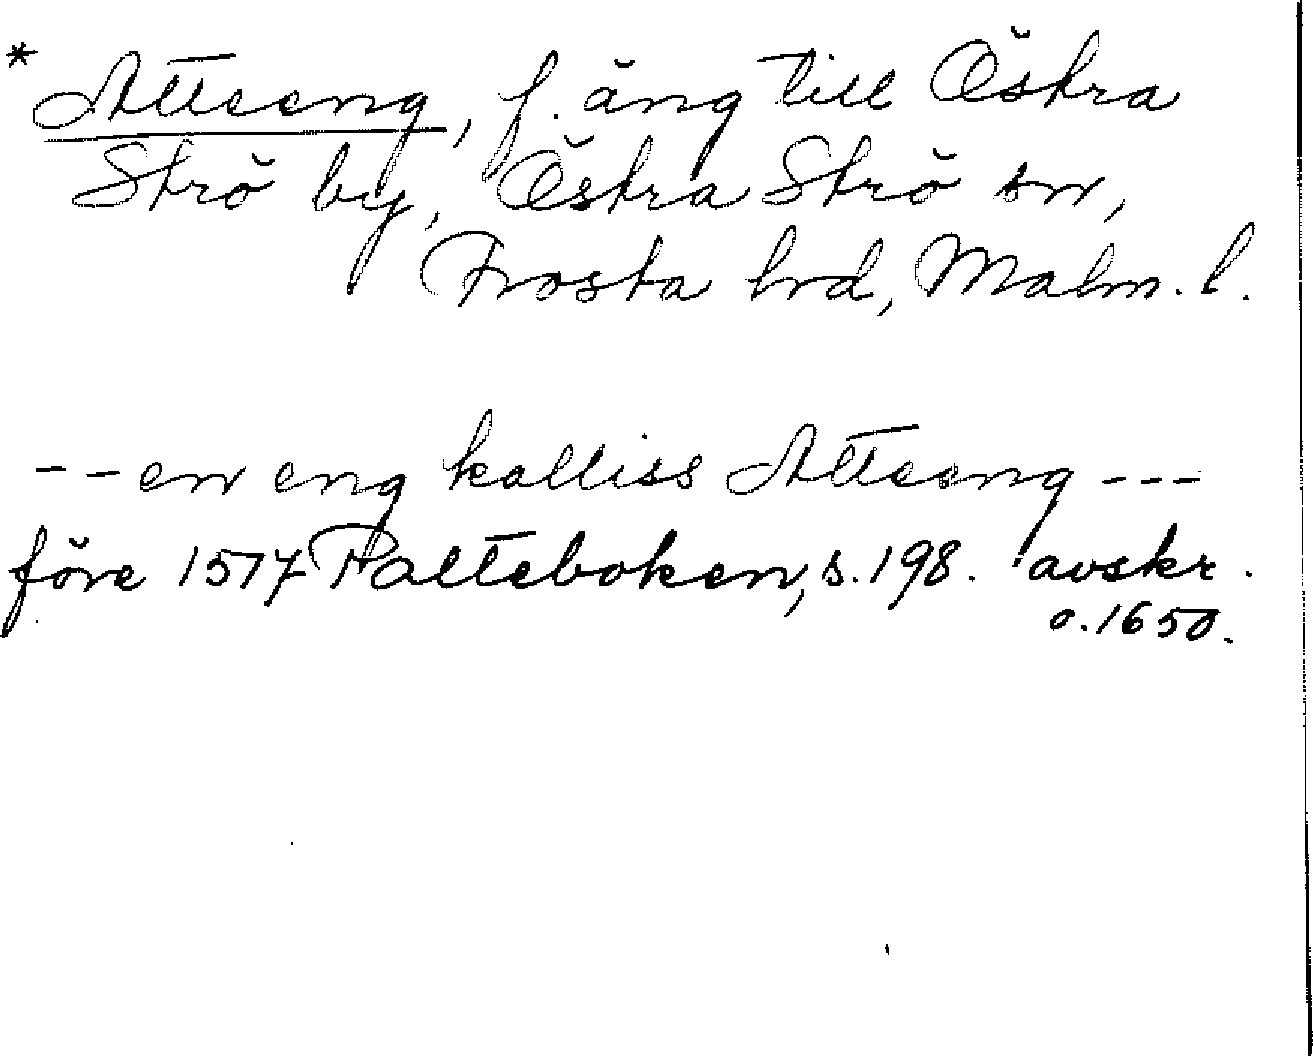 * Atteeng, f. äng till Östra
Strö by, Östra Strö sn,
Frosta hrd, Malm. l.
-- en eng kalliss Atteeng ---
före 1517 Palteboken, s. 198. avskr.
o. 1650.